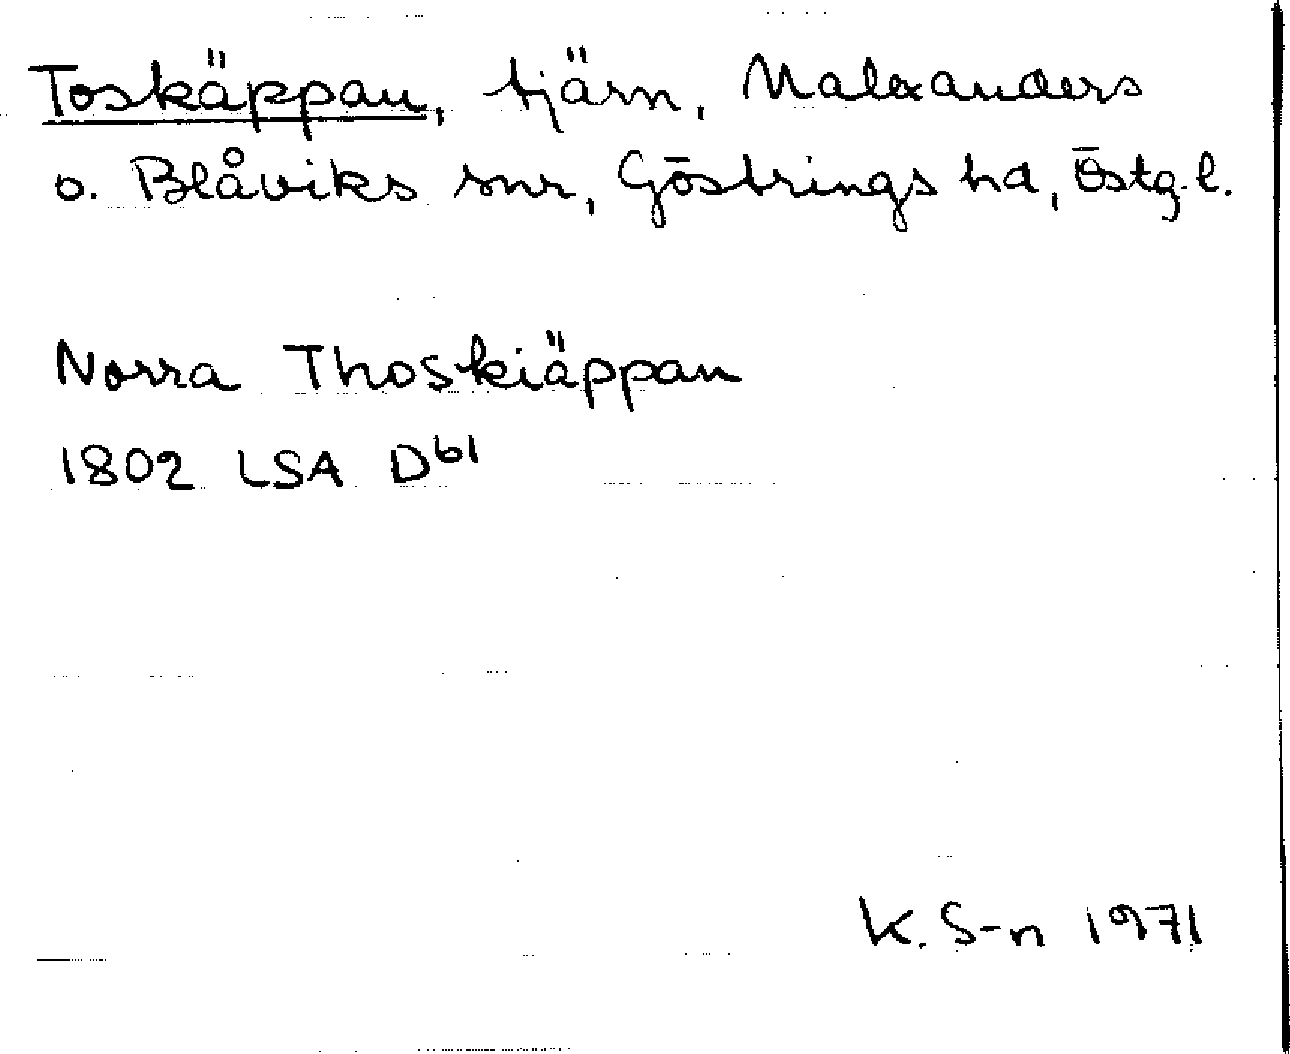 Toskäppan, tjärn, Malexanders
o. Blåviks snr, Göstrings hd, Östg.l.
Norra Thoskiäppan
1802 LSA D61
K. S-n 1971